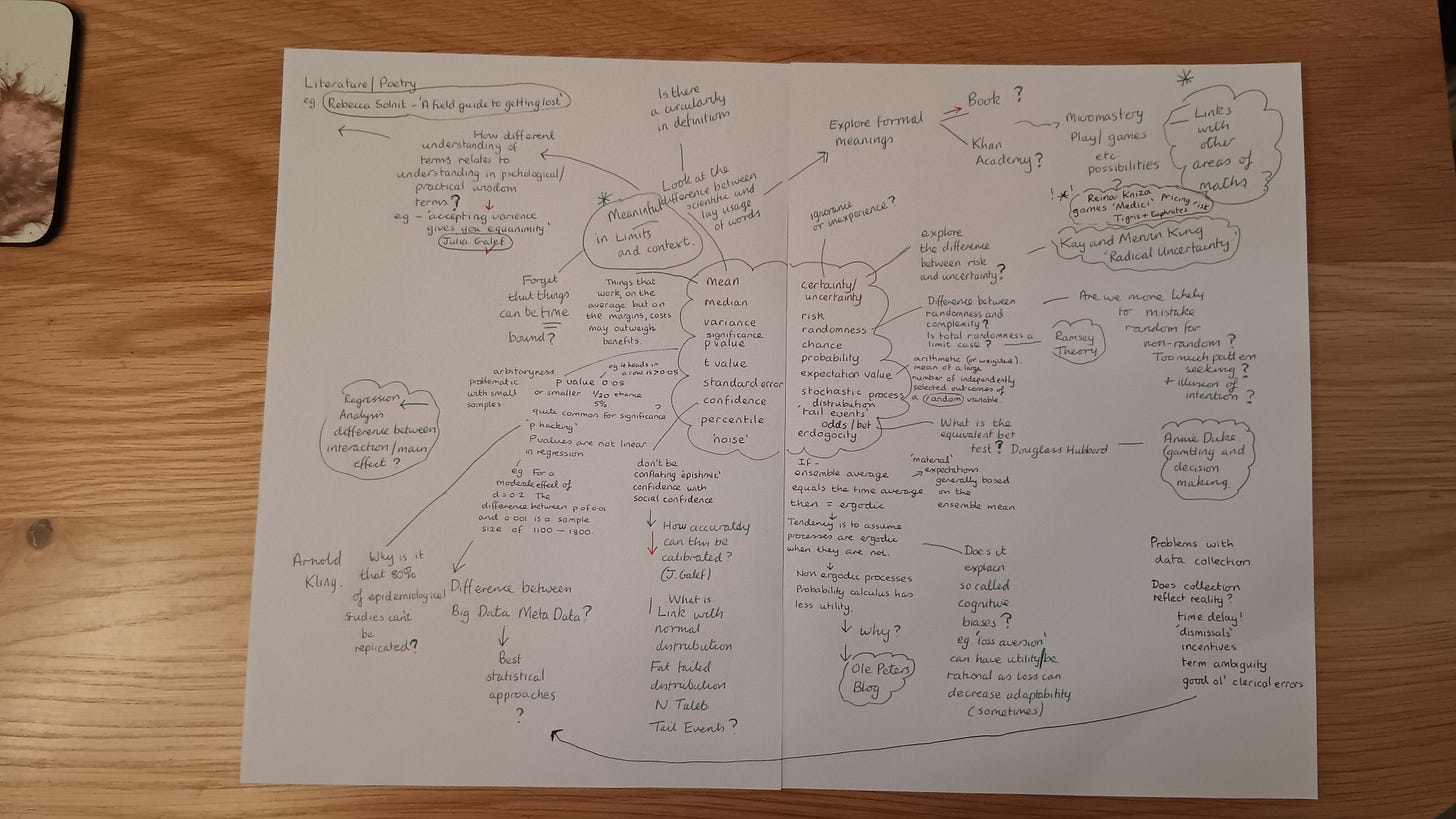 Literature/Poetry
eg Rebecca Solnit - 'A field guide to getting lost'
How different
understanding of
terms relates to
understanding in pschological/
practical wisdom
terms?
eg - 'accepting varience
gives you equanimity'
Julia Galef
Is there
a circularity
in definitions
Look at the
difference between
scientific and
lay usage
of words
Meaningful
in Limits
and context.
Forget
that things
can be time
bound?
Things that
work on the
average but on
the margins, costs
may outweigh
benefits.
Explore formal
meanings
Book ?
Khan
Academy?
Micromastery
Play/games
etc
possibilities
?
Links
with
other
areas of
maths ?
! * !
Reinar Kniza
games 'Medici' Pricing risk
Tigris + Euphrates
Kay and Mervin King
'Radical Uncertainty'
ignorance
or inexperience?
explore
the difference
between risk
and uncertainty?
mean
median
variance
significance
p value
t value
standard error
confidence
percentile
'noise'
certainty/
uncertainty
risk
randomness
chance
probability
expectation value
stochastic process
distrubution
'tail events'
odds/bet
erdogocity
Difference between
randomness and
complexity?
Is total randomness a
limit case ?
Ramsey
Theory
Are we more likely
to mistake
random for
non-random ?
Too much pattern
seeking ?
+ illusion of
intention ?
arithmetic (or weighted).
mean of a large
number of independently
selected outcomes of
a random variable.
What is the
equivalent bet
test? Douglass Hubbard
Annie Duke
gambling and
decision
making.
arbitoryness
problematic
with small
samples.
eg 4 heads in
a row is > 0.05
p value 0.05
or smaller 1/20 chance
5%
quite common for significance ?
'p hacking'
Pvalues are not linear
in regression
eg For a
moderate effect of
d = 0.2 The
difference between p of 0.01
and 0.001 is a sample
size of 1100 - 1800.
Regression
Analysis
difference between
interaction/main
effect ?
Arnold
Kling.
Why is it
that 80%
of epidemiological
studies can't
be
replicated?
Difference between
Big Data Meta Data?
Best
statistical
approaches
?
don't be
conflating 'epistimic'
confidence with
social confidence
How accurately
can this be
calibrated?
(J. Galef)
What is
Link with
normal
distrubution
Fat tailed
distrubution
N Taleb
Tail Events?
If -
ensemble average
equals the time average
then = ergodic
'material'
expectations
generally based
on the
ensemble mean
Tendency is to assume
processes are ergodic
when they are not.
Non ergodic processes
Probability calculus has
less utility.
Why?
Ole Peters
Blog
Does it
explain
so called
cognitive
biases ?
eg 'loss aversion'
can have utility/be
rational as loss can
decrease adaptability
(sometimes)
Problems with
data collection
Does collection
reflect reality?
time delay!
'dismissals'
incentives
term ambiguity
good ol' clerical errors